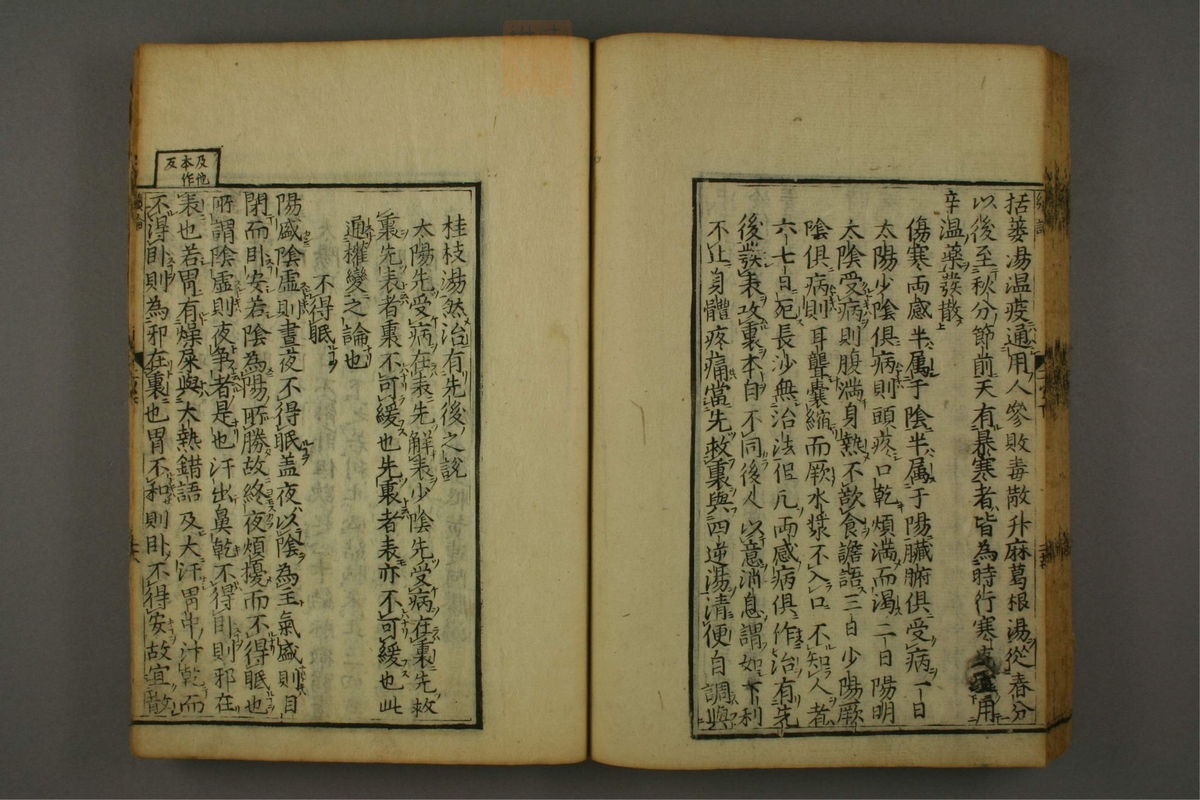 括蔞湯温疫通用人參敗毒散升麻葛根湯從春分
以後至秋分節前天有暴寒者皆為時行寒疫用
辛温藥發散
傷寒两感半属于陰半属于陽臟腑俱受病一日
太陽少陰俱病則頭疼口乾煩満而渇二日陽明
太陰受病則腹満身熱不欲食譫語三日少陽厥
陰俱病則耳聾囊縮而厥水漿不入口不知人者
六七日死長沙無治法但凡两感病俱作治有先
後發表攻裏本自不同後人以意消息謂如下利
不止身體疼痛當先救裏與四逆湯清便自調與
桂枝湯然治有先後之説
太陽先受病在表先解表少陰先受病在裏先救
裏先表者裏不可緩也先裏者表亦不可緩也此
通權變之論也
不得眠
陽盛陰虚則晝夜不得眠盖夜以陰為主氣盛則目
閉而卧安若陰為陽所勝故終夜煩擾而不得眠也
所謂陰虚則夜争者是也汗出鼻乾不得卧則邪在
表也若胃有燥屎與大熱錯語及大汗胃中汁乾而
不得卧則為邪在裏也胃不和則卧不得安故宜散
及他
本作
反